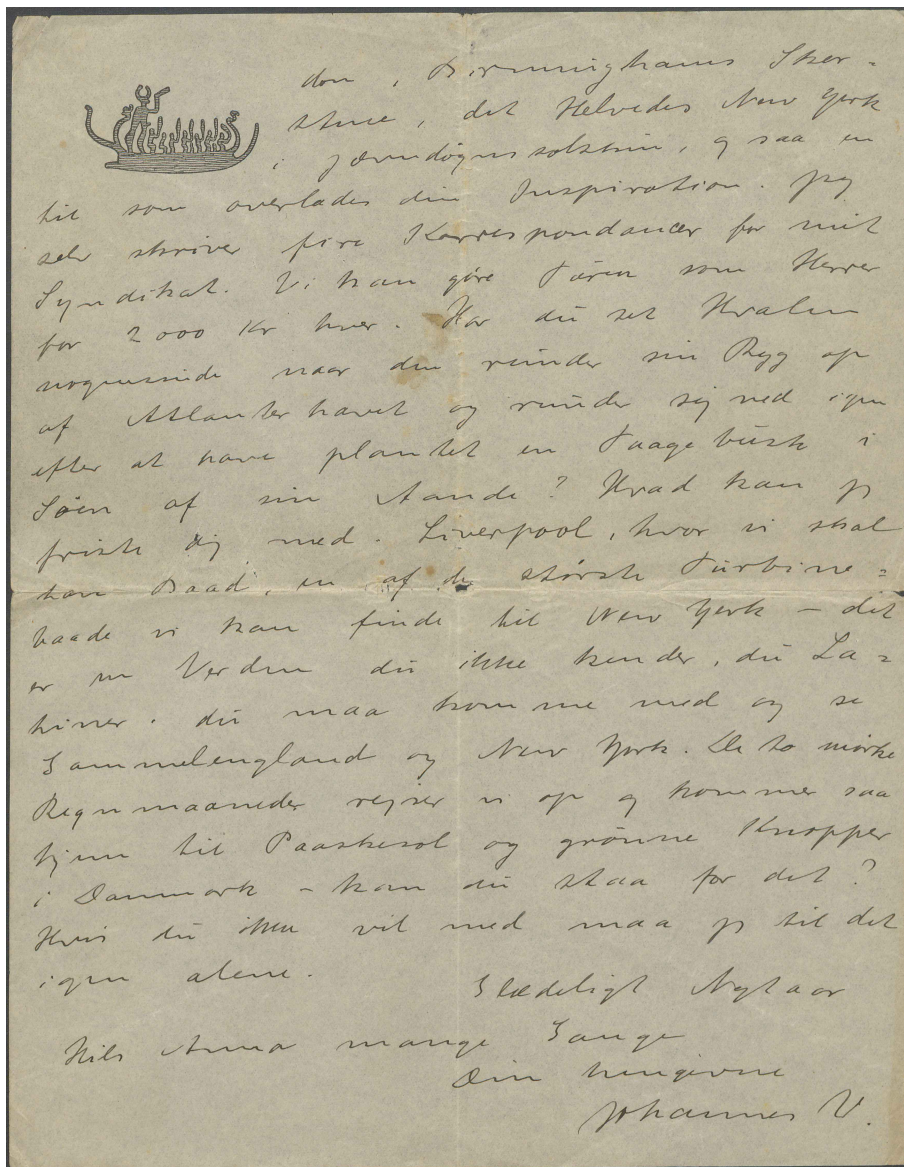 don, Birminghams Skor=
stene, det Helvedes New York
i Jævndøgnssolskin, og saa en
til som overlades din Inspiration. Jeg
selv skriver fire Korrespondancer for mit
Syndikat. Vi kan gøre Turen som Herrer
for 2000 Kr hver. Har du set Hvalen
nogensinde naar den runder sin Ryg op
af Atlanterhavet og runder sig ned igen
efter at have plantet en Taagebusk i
Søen af sin Aande? Hvad kan jeg
friste dig med. Liverpool, hvor vi skal
tage Baad, en af de største Turbine=
baade vi kan finde til New York – det
er en Verden du ikke kender, du La=
tiner. du maa komme med og se
Gammelengland og New York. De to mørke
Regnmaaneder rejser vi op og kommer saa
hjem til Paaskesol og grønne Knopper
i Danmark – kan du staa for det?
Hvis du ikke vil med maa jeg til det
igen alene.
Glædeligt Nytaar
Hils Anna mange Gange
Din hengivne
Johannes V.